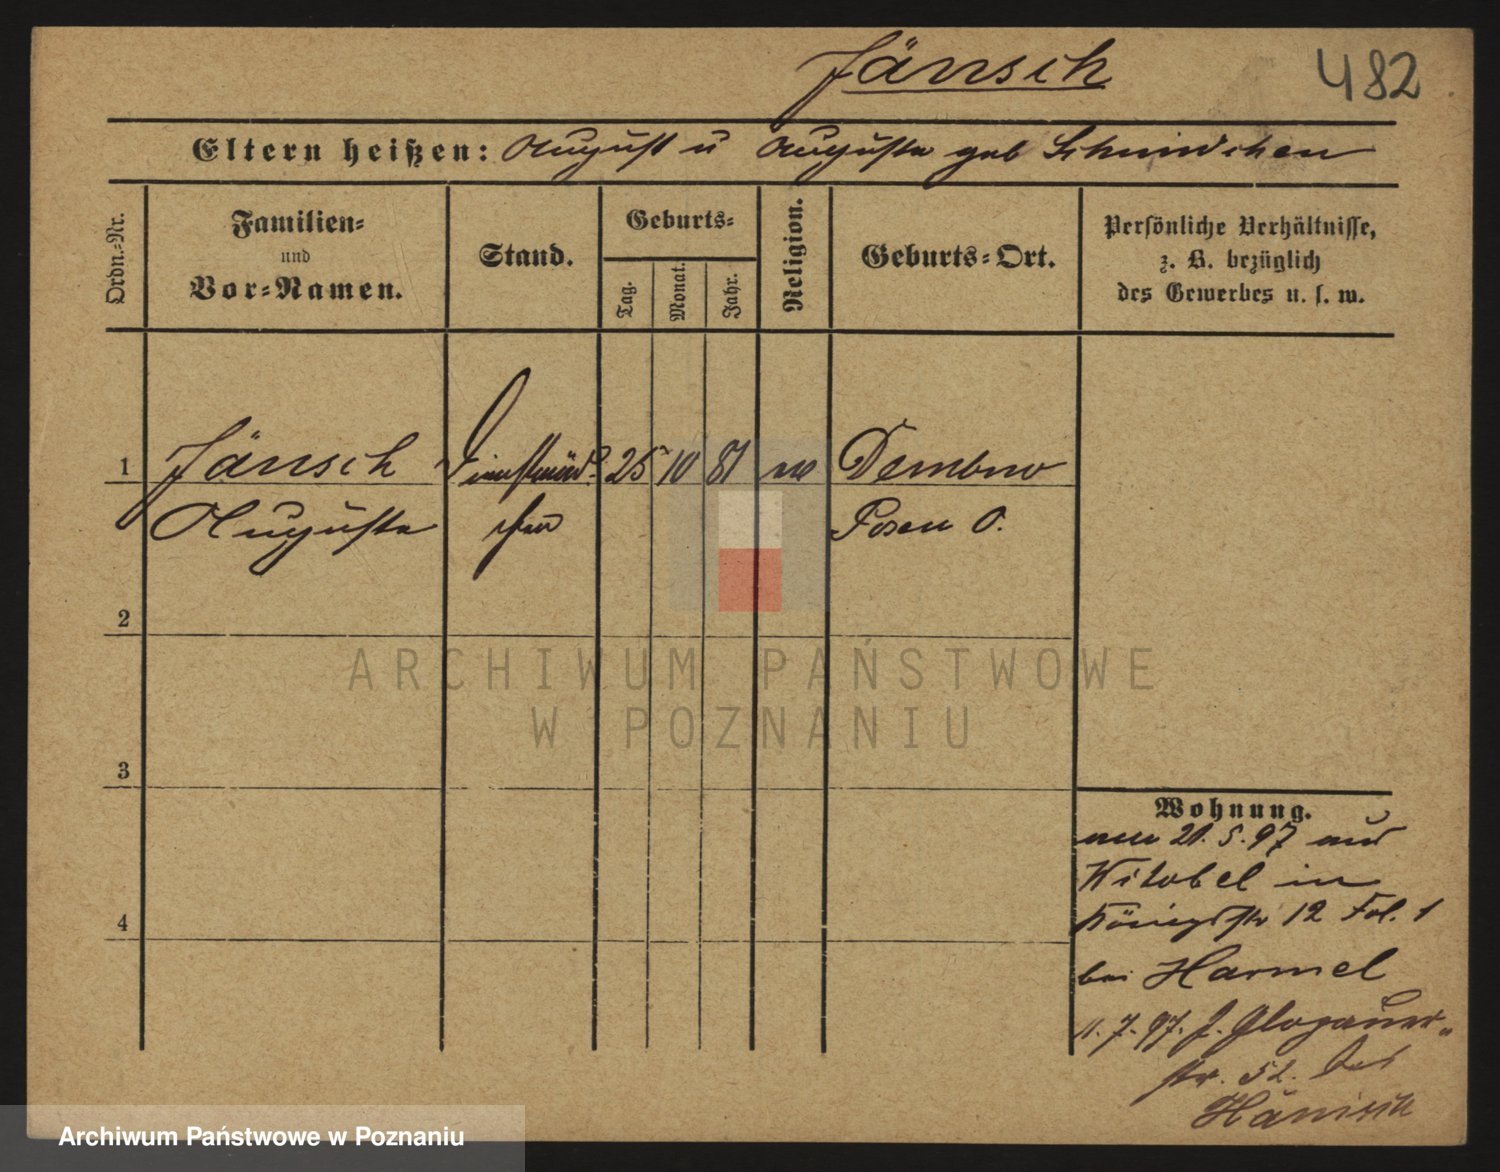 Jänsch
482
Eltern heißen: August u Auguste geb Schmidchen
Ordn.-Nr.
Familien-
und
Vor-Namen.
Stand.
Geburts-
Tag.
Monat.
Jahr.
Religion.
Geburts-Ort.
Persönliche Verhältnisse,
z. B. bezüglich
des Gewerbes u. s. w.
1 Jänsch Dienstmäd- 25 10 81 ev Dembno
Auguste chen Posen O.
2
3
4
Wohnung.
21.5.97 aus
Witobel in
Königstr 12 Fol. 1
bei Harmel
11.7.97. J. Glogauer-
str. 52. bei
Hänisch
ARCHIWUM PAŃSTWOWE
W POZNANIU
Archiwum Państwowe w Poznaniu